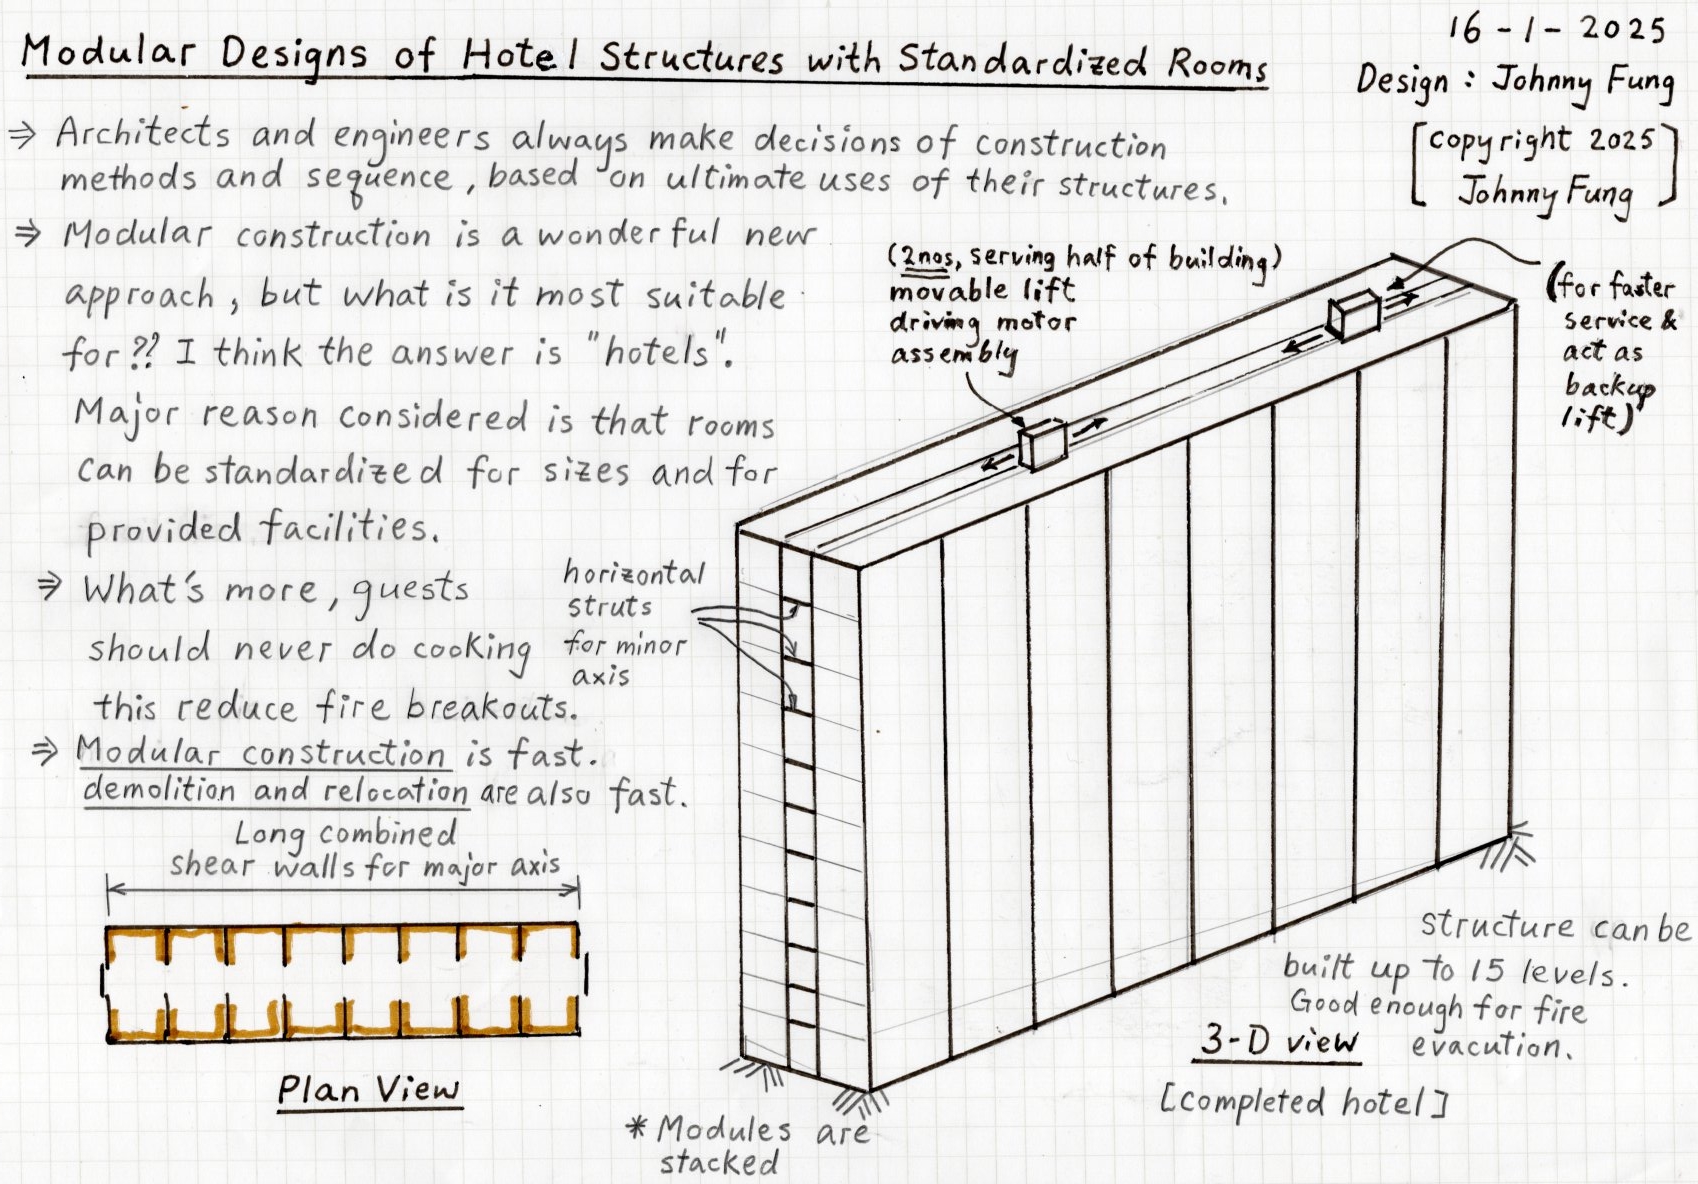 Modular Designs of Hotel Structures with Standardized Rooms
16-1-2025
Design : Johnny Fung
[copyright 2025
Johnny Fung]
⇒ Architects and engineers always make decisions of construction
methods and sequence, based on ultimate uses of their structures.
⇒ Modular construction is a wonderful new
approach, but what is it most suitable
for?? I think the answer is "hotels".
Major reason considered is that rooms
can be standardized for sizes and for
provided facilities.
⇒ What's more, guests
should never do cooking
this reduce fire breakouts.
⇒ Modular construction is fast.
demolition and relocation are also fast.
Long combined
shear walls for major axis
Plan View
(2nos, serving half of building)
movable lift
driving motor
assembly
(for faster
service &
act as
backup
lift)
horizontal
struts
for minor
axis
structure can be
built up to 15 levels.
Good enough for fire
evacution.
3-D view
[completed hotel]
* Modules are
stacked